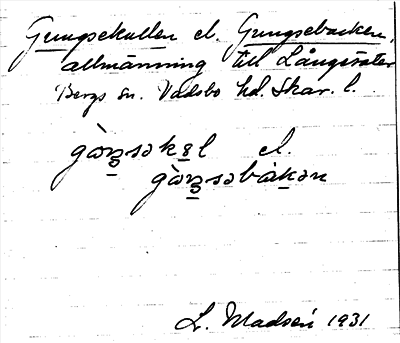 Gungsekullen el. Gungsebacken,
allmänning till Långsäter
Bergs sn. Vadsbo hd. Skar. l.
gòŋsəkul el.
gòŋsəbàkən
L. Madsén 1931